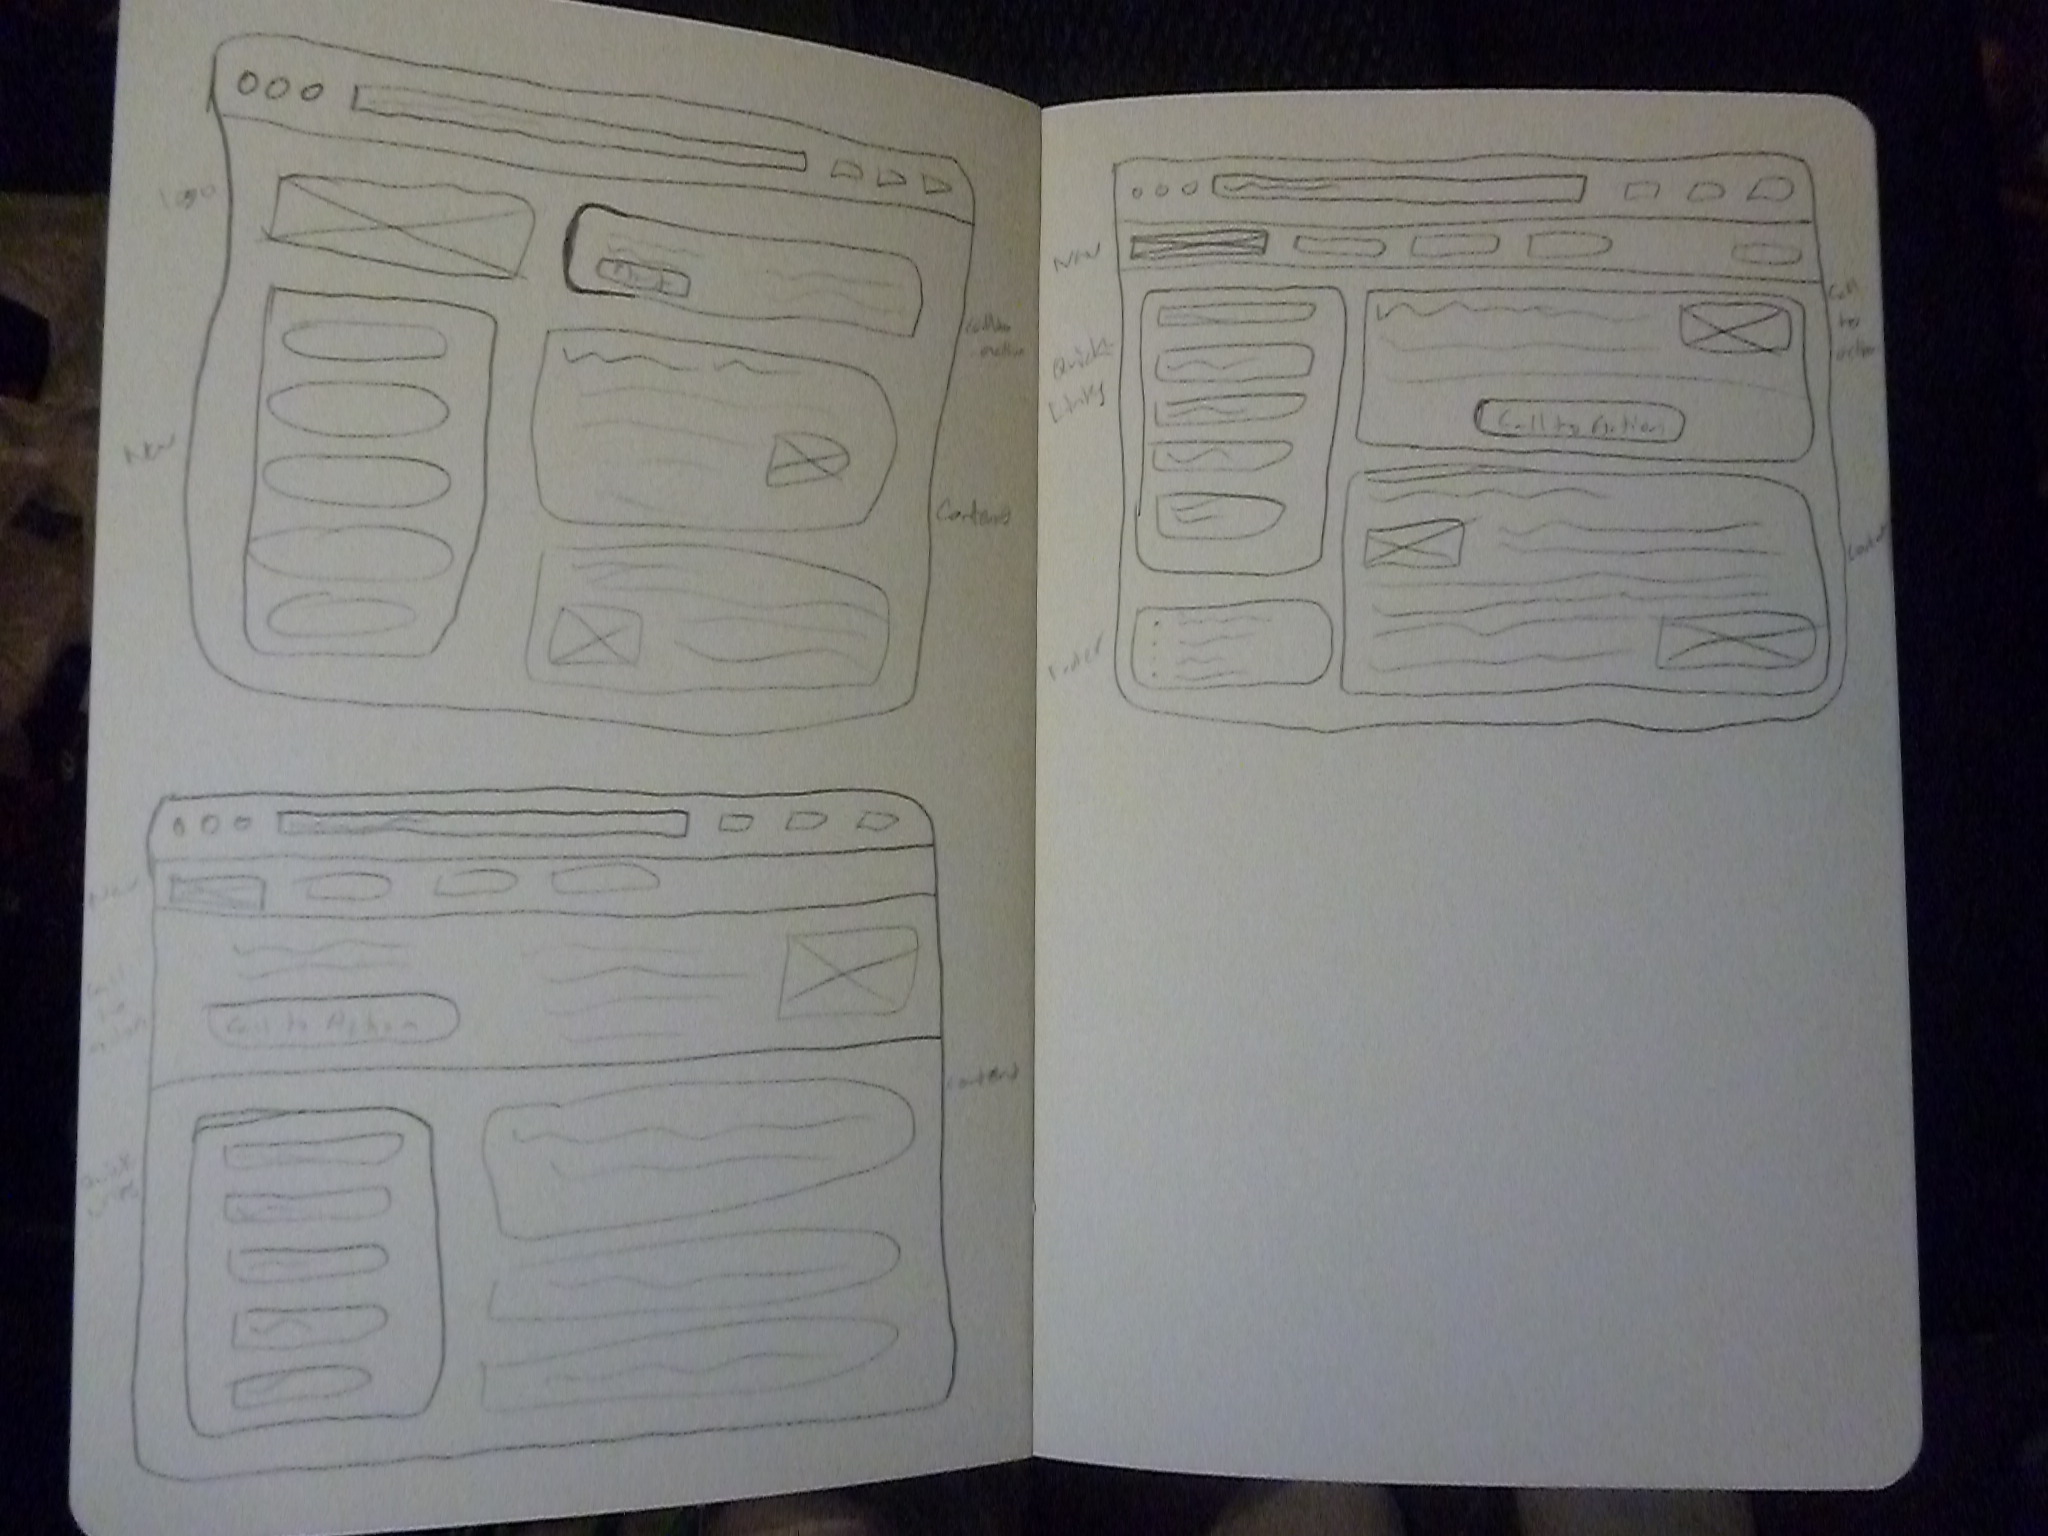 Logo
Call to
action
Nav
Content
Nav
Call
to
action
Call to Action
Content
Quick
Links
Nav
Call
to
action
Quick
Links
Call to Action
Content
Footer